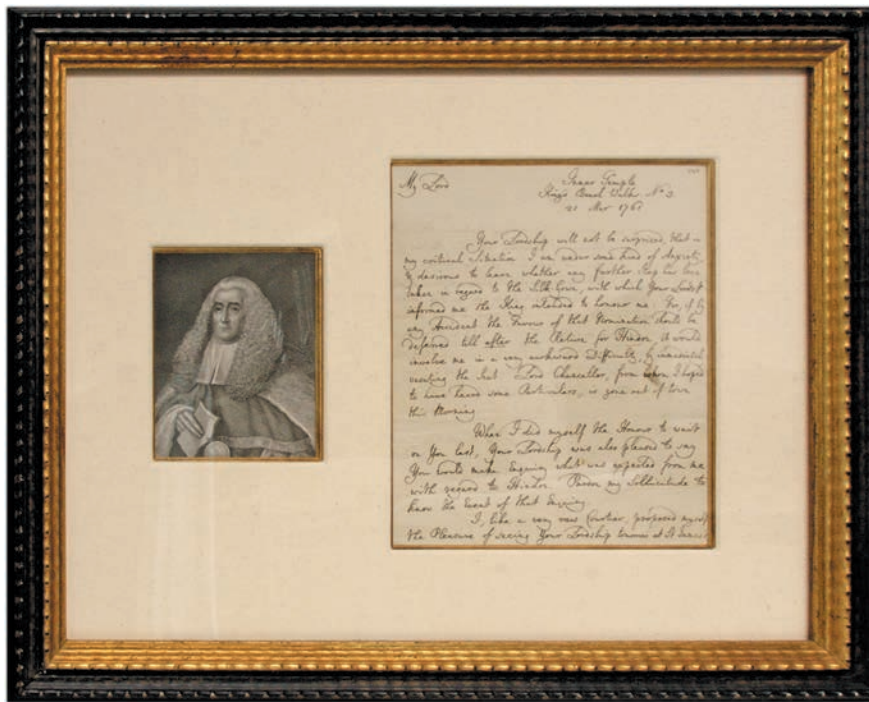 My Lord
Inner Temple
King's Bench Walks. No 3.
21 Mar 1761
Your Lordship will not be surprized, that in
my critical Situation I am under some kind of Anxiety,
& desirous to learn whether any further Step has been
taken in regard to the Silk-Gown, with which Your Lordsp
informed me the King intended to honour me. For, if by
any Accident the Favour of that Nomination should be
deferred till after the Return for Hindon, it would
involve me in a very awkward Difficulty, by immediately
vacating the Seat. Lord Chancellor, from whom I hoped
to have heard some Particulars, is gone out of Town
this Morning
When I did myself the Honour to wait
on You last, Your Lordship was also pleased to say
You would make Enquiry what was expected from me
with regard to Hindon. Pardon my Sollicitude to
know the Event of that Enquiry
I, like a very new Courtier, proposed myself
the Pleasure of seeing Your Lordship tomorrow at St James's